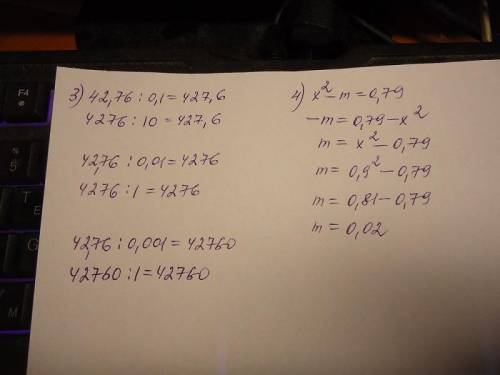 3) 42,76 : 0,1 = 427,6
4276 : 10 = 427,6
42,76 : 0,01 = 4276
4276 : 1 = 4276
42,76 : 0,001 = 42760
42760 : 1 = 42760
4) x² - m = 0,79
-m = 0,79 - x²
m = x² - 0,79
m = 0,9² - 0,79
m = 0,81 - 0,79
m = 0,02
F4
%
5
T
E
G